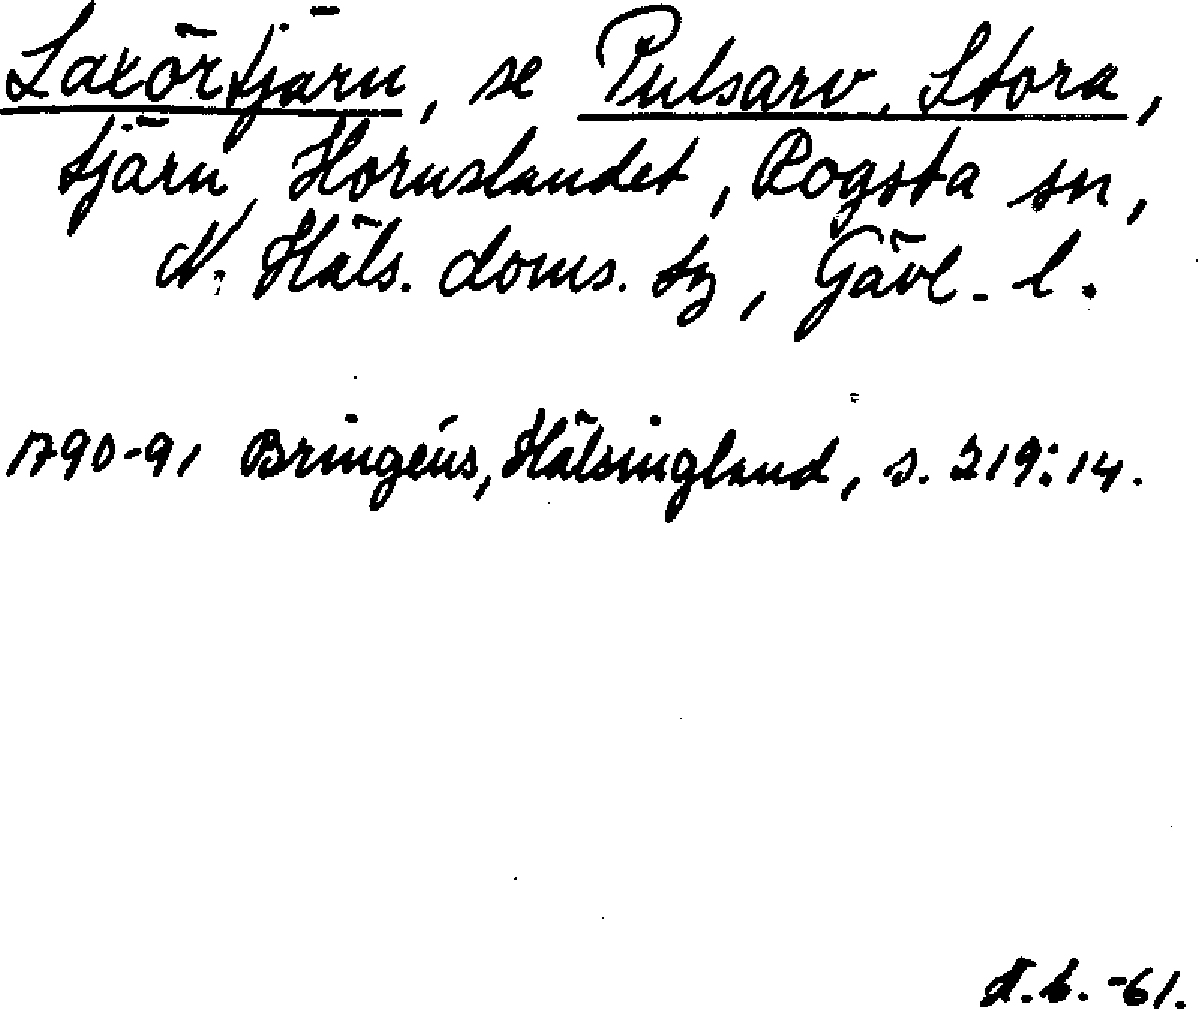 Laxörtjärn, se Pulsarv, Stora,
tjärn, Hornslandet, Rogsta sn,
N. Häls. doms. tg, Gävl. l.
1790-91 Bringéus, Hälsingland, s. 219:14.
A.b. -61.